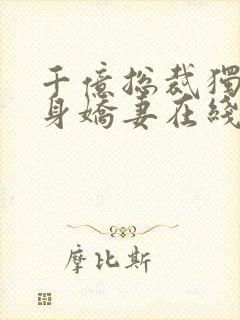 千億總裁獨
身嬌妻在綫
摩比斯